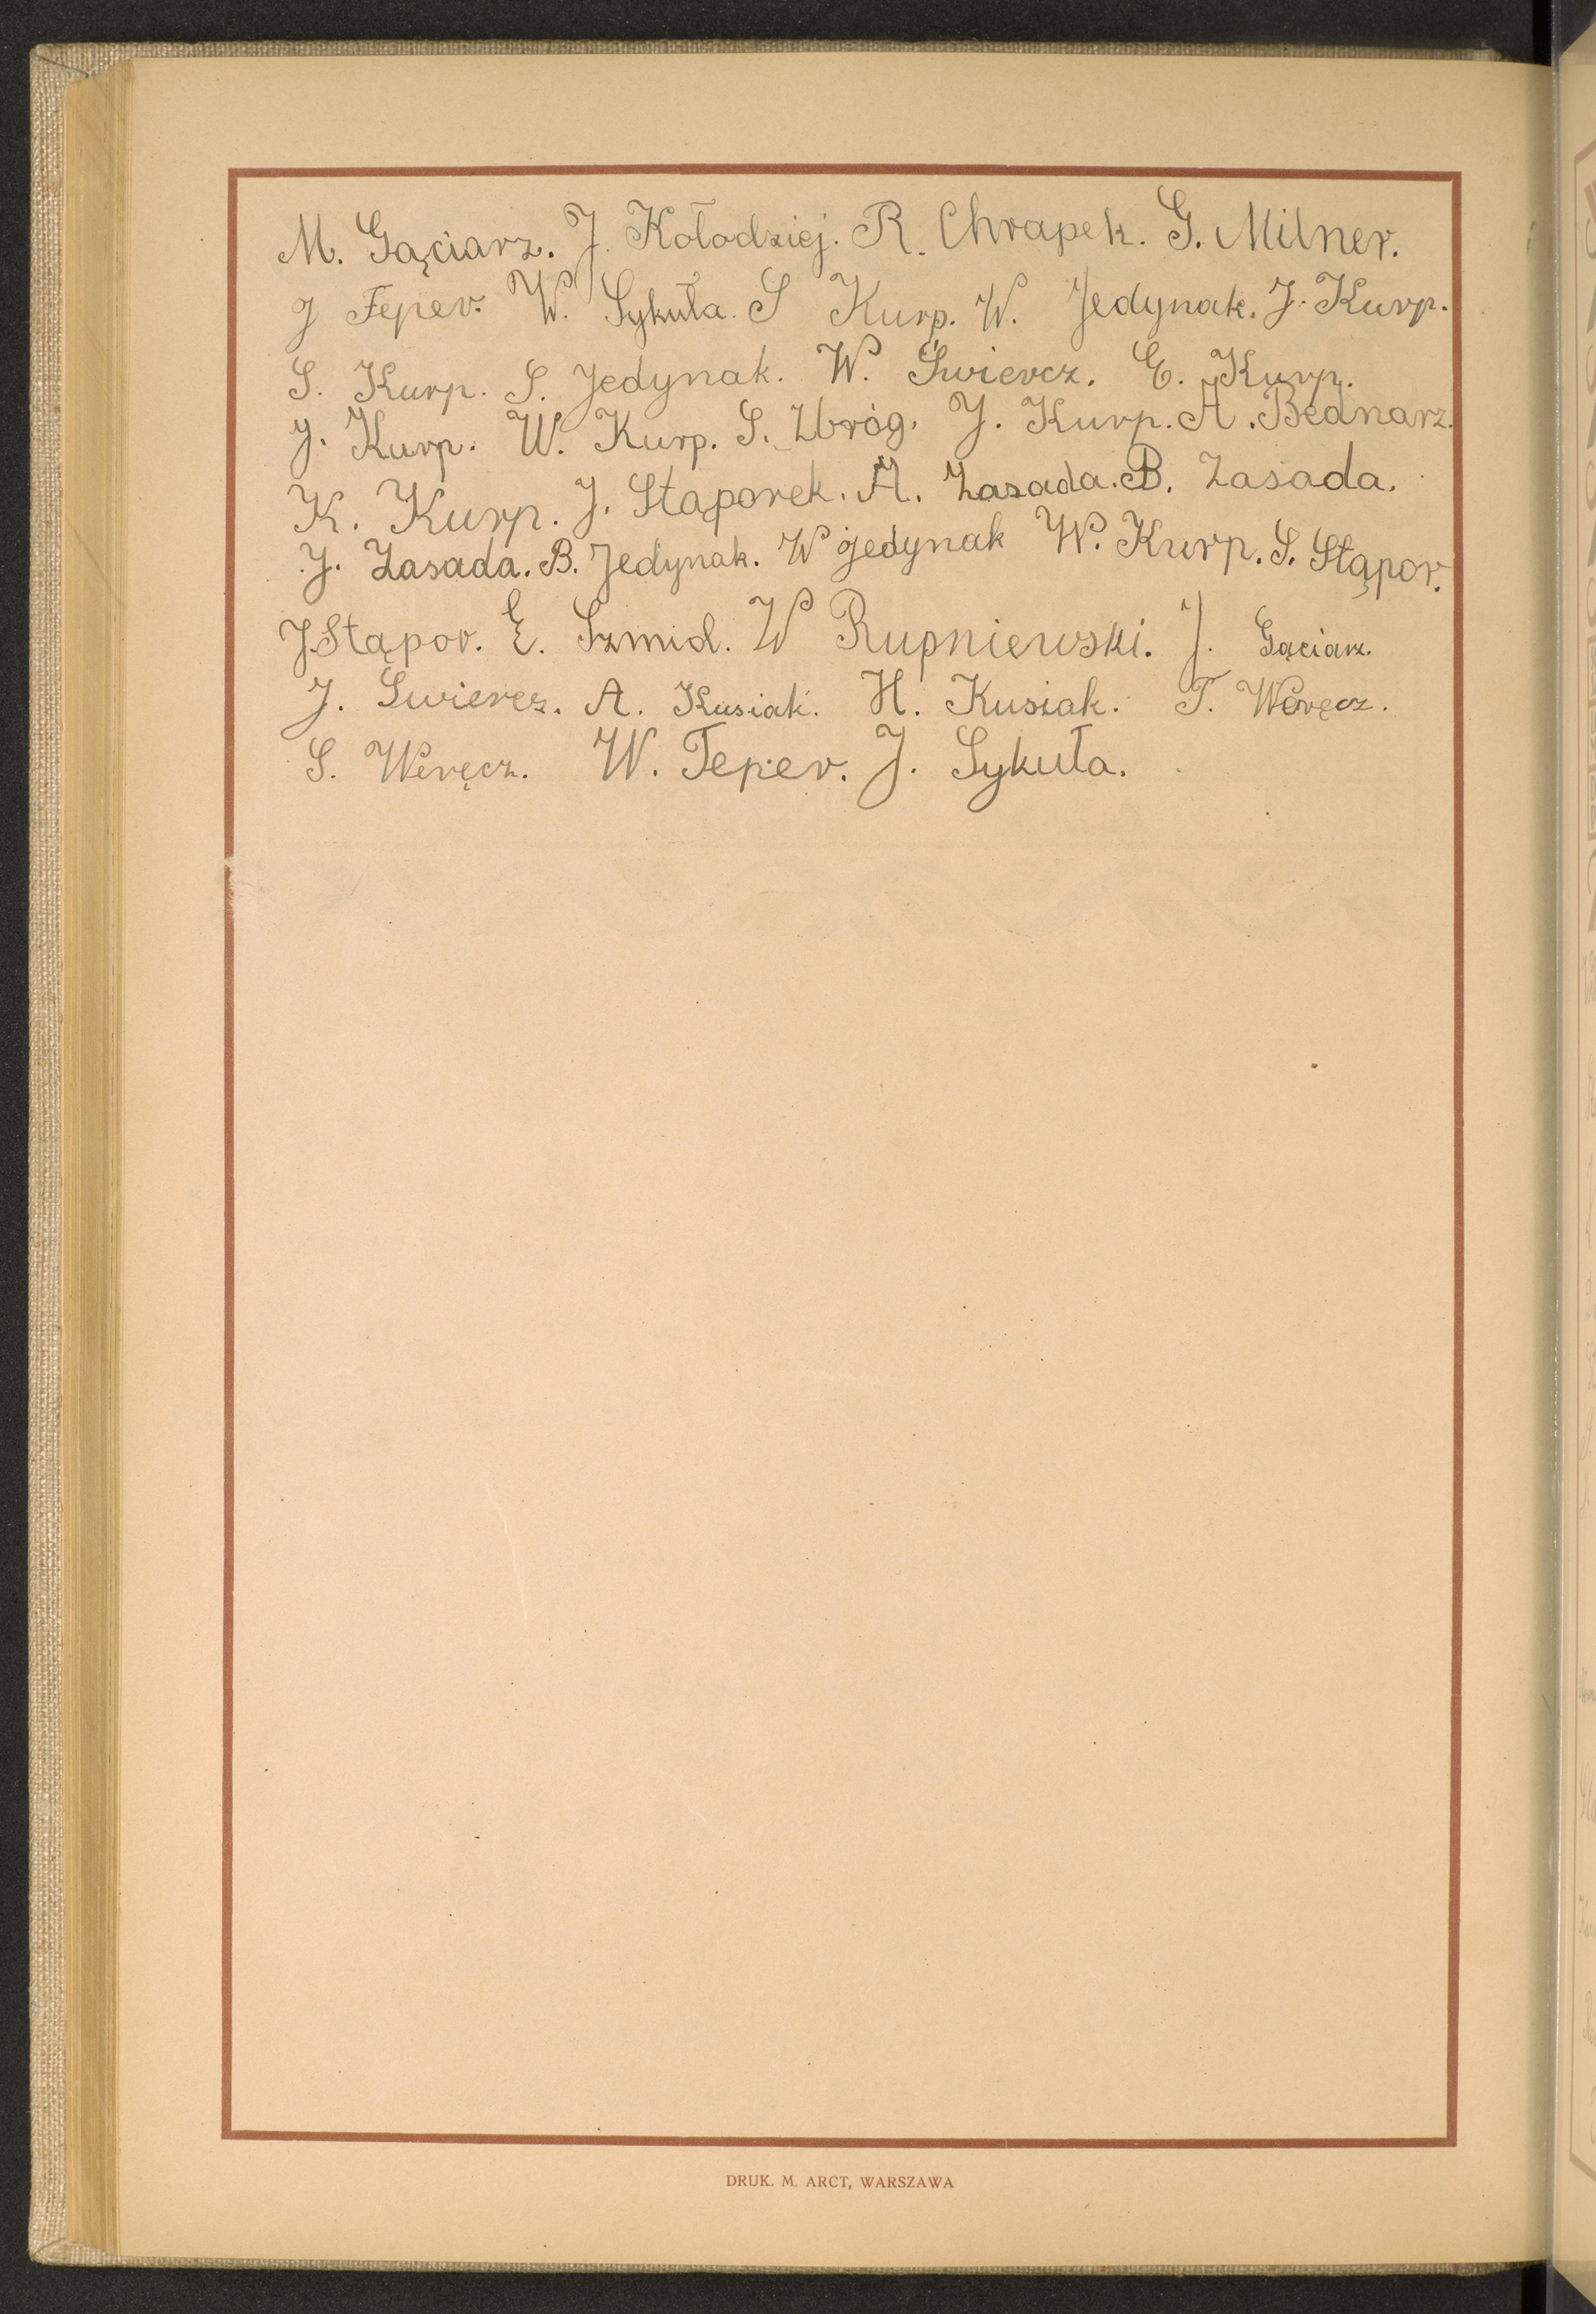 M. Gąciarz. J. Kołodziej. R. Chrapek. G. Milner.
J Feper. W. Sykuła. S Kurp. W. Jedynak. J. Kurp.
S. Kurp. S. Jedynak. W. Świercz. E. Kurp.
J. Kurp. W. Kurp. S. Zbróg. J. Kurp. A. Bednarz.
K. Kurp. J. Stąporek. A. Zasada. B. Zasada.
J. Zasada. B. Jedynak. W jedynak W. Kurp. S. Stąpor.
J. Stąpor. E. Szmid. W Rupniewski. J. Gąciarz.
J. Swiercz. A. Kusiak. H. Kusiak. T. Weręcz.
S. Weręcz. W. Teper. J. Sykuła.
DRUK. M. ARCT, WARSZAWA